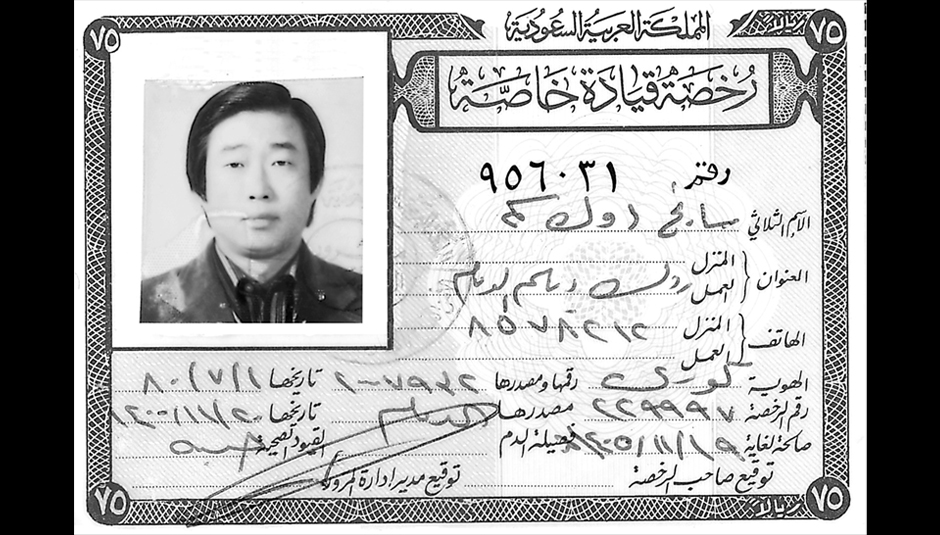 ٧٥ المملكة العربية السعودية ريالاً ٧٥
رخصة قيادة خاصة
رقم ٩٥٦٠٣١
الاسم الثلاثي
العنوان المنزل
العمل الدمام
الهاتف المنزل ٨٥٧٨٢١٢
العمل
الهوية كوري رقمها ومصدرها ٢٠٠٧٩٣٢ تاريخها ٨٠/٧/١
رقم الرخصة ٢٢٩٩٩٧ مصدرها الدمام تاريخها ١٢٠٠/١١/٢٠
صالحة لغاية ١٢٠٥/١١/١٩ فصيلة الدم القيود الصحية
توقيع صاحب الرخصة توقيع مدير ادارة المرور
٧٥ ريالاً ٧٥